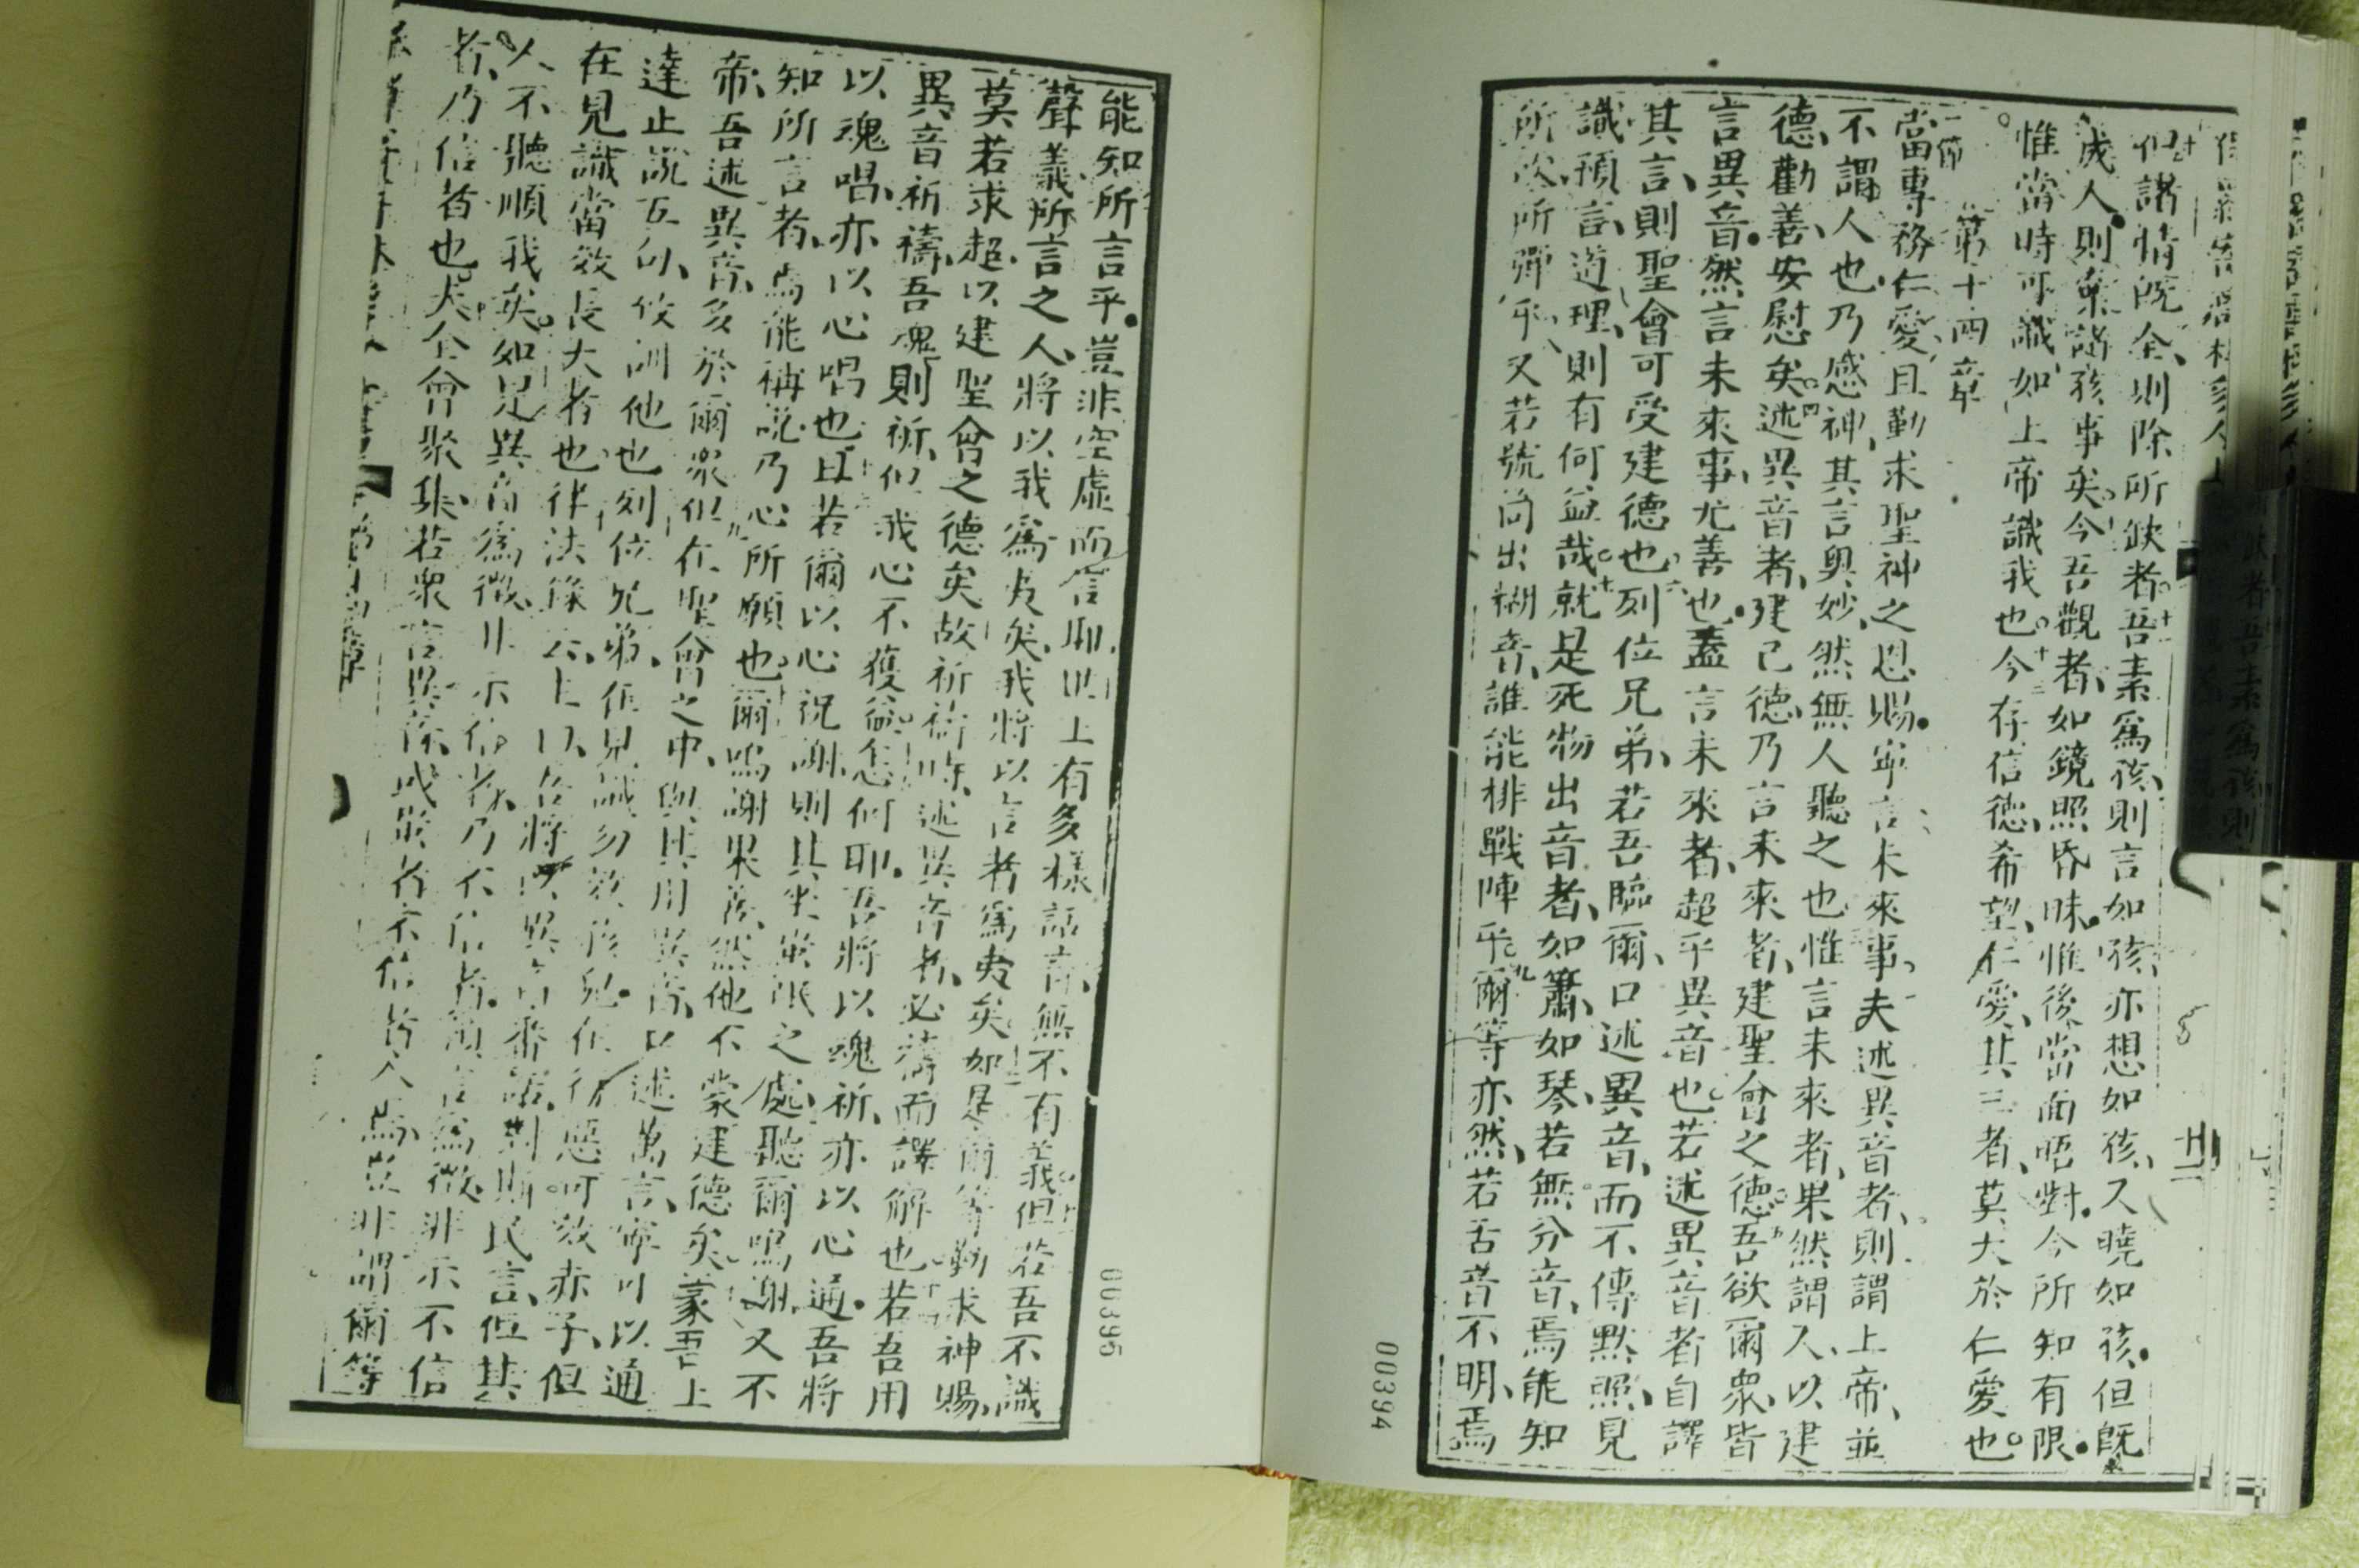 但諸情既全、則除所缺者。十一吾素爲孩、則言如孩、亦想如孩、又曉如孩。但既
成人則棄諸孩事矣。今吾觀者、如鏡照昏昧。惟後當面晤對。今所知有限。
惟當時可識、如上帝識我也。十三今存信德、希望、仁愛、其三者、莫大於仁愛也。
第十四章
一節
當專務仁愛、且勤求聖神之恩賜。寧言未來事、夫述異音者、則謂上帝、並
不謂人也、乃感神、其言奧妙、然無人聽之也。惟言未來者、果然謂人、以建
德、勸善、安慰矣。四述異音者、建己德、乃言未來者、建聖會之德。五吾欲爾衆、皆
言異音。然言未來事、尤善也。蓋言未來者、超乎異音也。若述異音者自譯
其言、則聖會可受建德也。六列位兄弟、若吾臨爾、口述異音、而不傳默照、見
識、預言、道理、則有何益哉。就是死物出音者、如簫、如琴、若無分音、焉能知
所吹所彈乎、又若號筒出糊音、誰能排戰陣乎。九爾等亦然、若舌音不明、焉
00394
能知所言乎。豈非空虛而言耶。世上有多樣話言、無不有義。但若吾不識
聲義、所言之人、將以我爲夷矣、我將以言者爲夷矣。如是爾等勤求神賜、
莫若求超以建聖會之德矣。故祈禱時、述異音者、必禱而譯解也。若吾用
異音祈禱、吾魂則祈、但我心不獲益。怎何耶。吾將以魂祈、亦以心通。吾將
以魂唱、亦以心唱也。且若爾以心祝謝、則其坐業氓之處、聽爾鳴謝、又不
知所言者、焉能稱說乃心所願也。爾鳴謝果善、然他不蒙建德矣。蒙吾上
帝、吾述異音、多於爾衆。但在聖會之中、與其用異音、以述萬言、寧可以通
達止說五句、佼訓他也。列位兄弟、但見識勿效孩兒。但彼惡可效赤子、但
在見識當效長大者也。律法錄云、上以、吾將以異音番話、對斯民言、但其
人不聽順我矣。如是異音爲徵、非示信者、乃不信者。預言爲徵、非示不信
者、乃信者也。夫全會聚集、若衆言異音、或學者不信者入焉、豈非謂爾等
00395